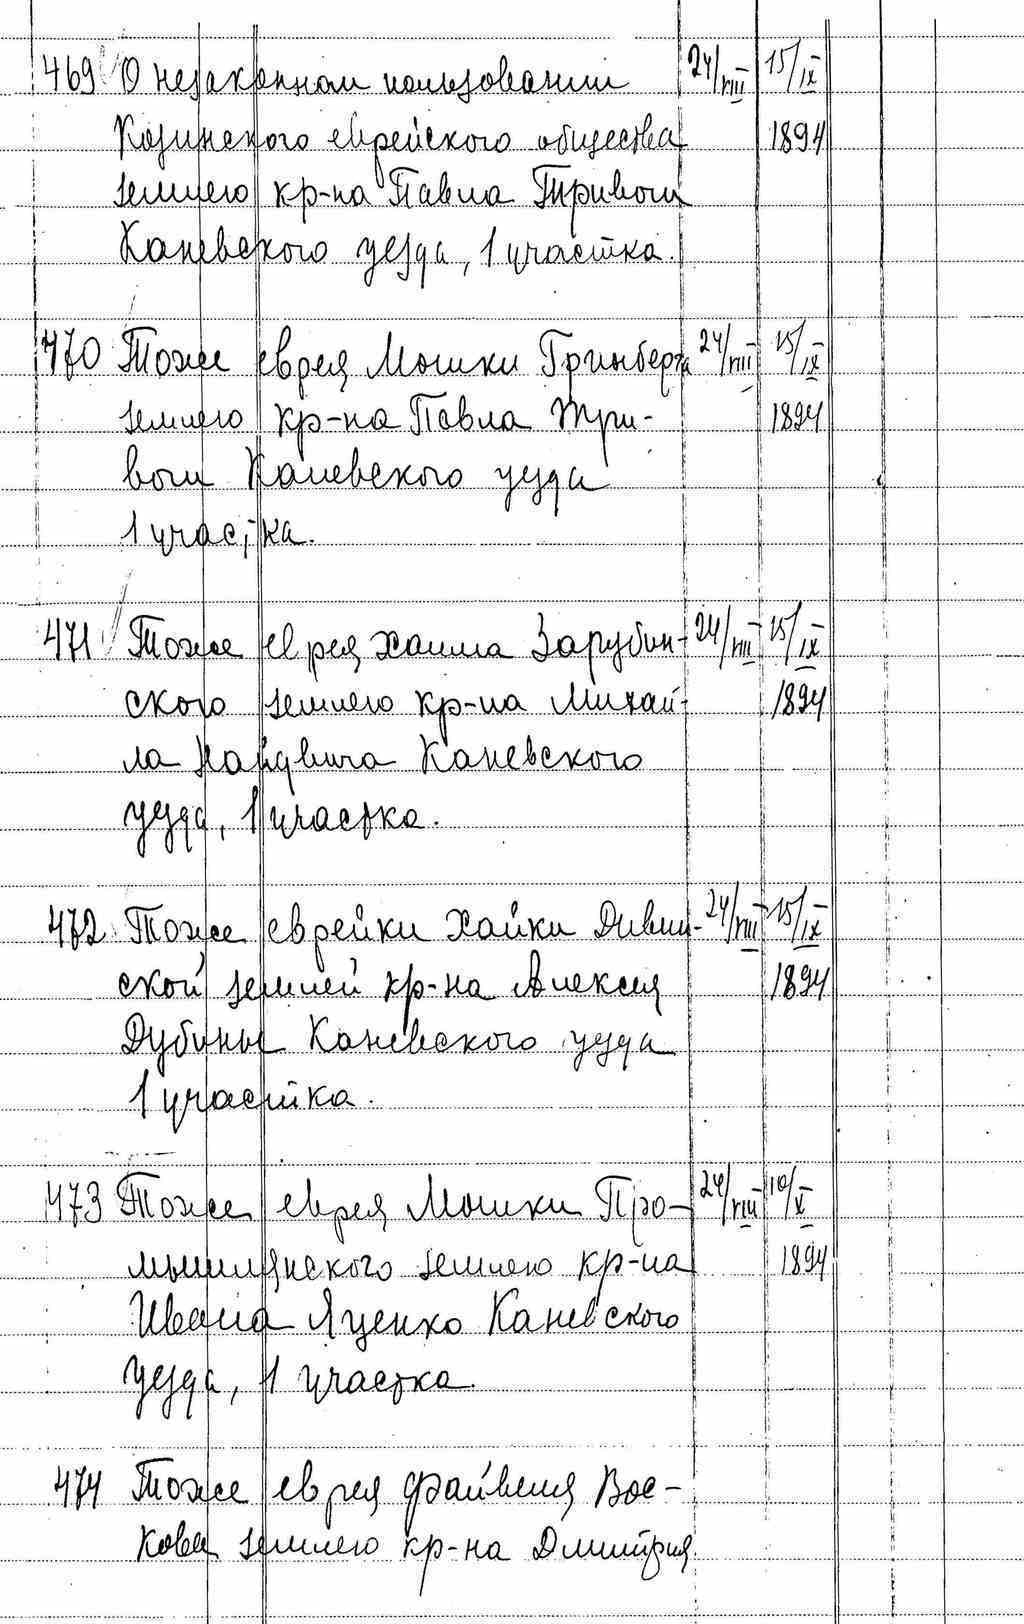 469 О незаконном пользовании 24/VIII 15/IX
Козинского еврейского общества 1894
землею кр-на Павла Тривоги
Каневского уезда, 1 участка.
470 Тоже еврея Мошки Гринберга 24/VIII 15/IX
землею кр-на Павла Три- 1894
воги Каневского уезда
1 участка.
471 Тоже еврея Хаима Зарубин- 24/VIII 15/IX
ского землею кр-на Михай- 1894
ла Каневского
уезда, 1 участка.
472 Тоже еврейки Хайки Дивин- 24/VIII 15/IX
ской землей кр-на Алексея 1894
Дубины Каневского уезда
1 участка.
473 Тоже еврея Мошки Про- 24/VIII 10/X
мышлянского землею кр-на 1894
Ивана Яценко Каневского
уезда, 1 участка.
474 Тоже еврея Файвеля Вос-
кова землею кр-на Дмитрия